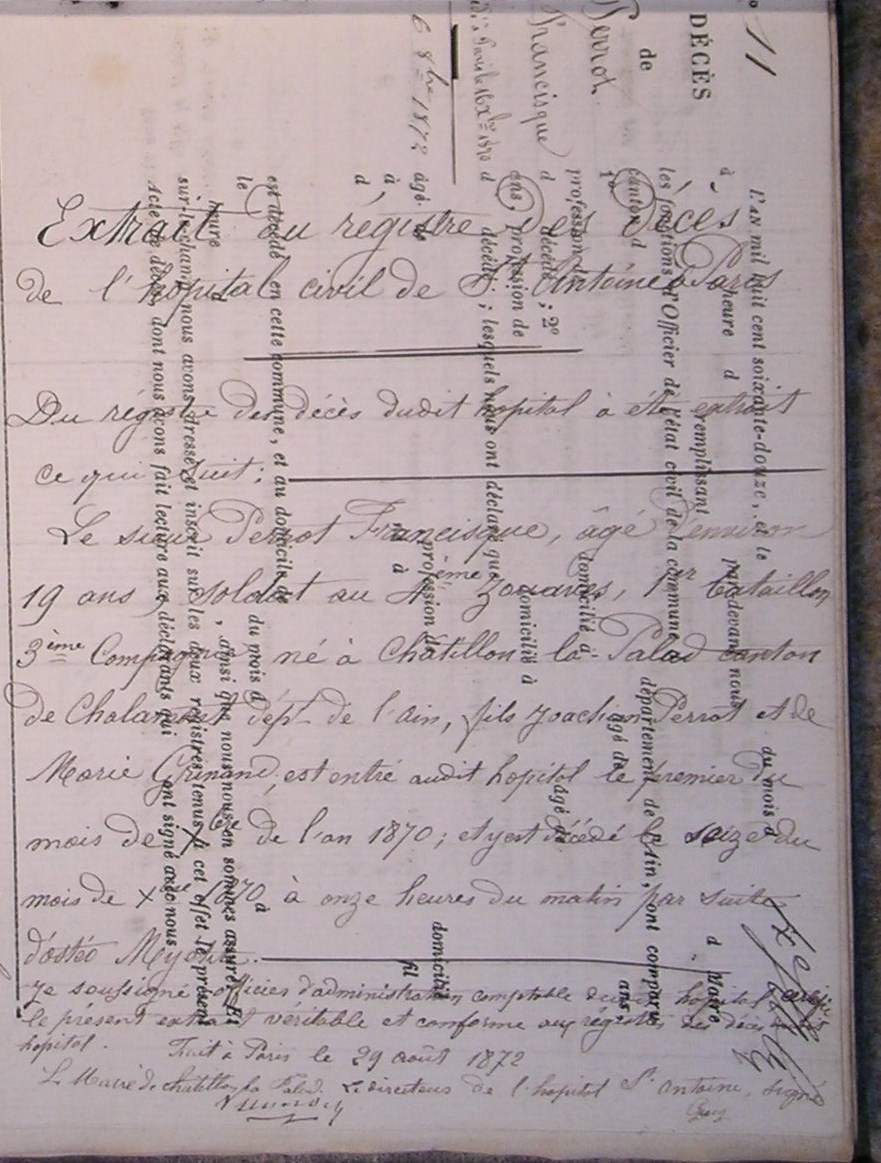 Nº 11
DÉCÈS
de
Perrot
Francisque
6 8bre 1872
L'AN mil huit cent soixante-douze, et le du mois d
à heure d par-devant nous
remplissant d Maire
les fonctions d'Officier de l'état civil de la commune d
canton d département de l'Ain, ont comparu
1º âgé de ans,
profession d domicilié à
d décédé; 2º âgé d
ans, profession de domicilié à
d décédé; lesquels nous ont déclaré que
âgé de profession de domicilié
à à fil
d
est décédé en cette commune, et au domicile de
le du mois d à
heure , ainsi que nous nous en sommes assuré. Et
sur-le-champ nous avons dressé et inscrit sur les deux registres tenus à cet effet le présent
Acte de décès, dont nous avons fait lecture aux déclarants qui ont signé avec nous
Extrait du régistre des Décès
de l'hopital civil de St Antoine à Paris
Du régistre des décès dudit hopital à été extrait
ce qui suit:
Le sieur Perrot Francisque, âgé d'environ
19 ans, soldat au 4ème zouaves, 1er bataillon
3ème Compagnie né à Châtillon-la-Palud canton
de Chalamont dépt de l'ain, fils Joachim Perrot et de
Marie Grinand, est entré audit hopital le premier du
mois de Xbre de l'an 1870; et y est décédé le seize du
mois de Xbre 1870 à onze heures du matin par suites
d'ostéo Myélite.
Je soussigné officier d'administration comptable dudit hopital certifie
le présent extrait véritable et conforme aux régistres des décès dudit
hopital. Fait à Paris le 29 août 1872
Le Maire de chatillon la Palud. Le directeur de l'hopital St antoine, signé